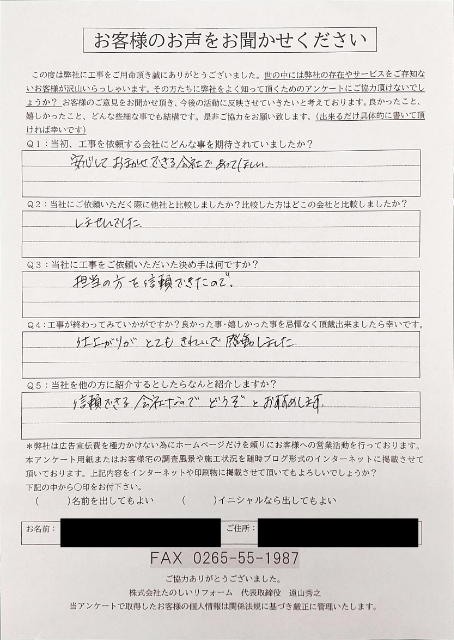 お客様のお声をお聞かせください
この度は弊社に工事をご用命頂き誠にありがとうございました。世の中には弊社の存在やサービスをご存知な
いお客様が沢山いらっしゃいます。その方たちに弊社をよく知って頂くためのアンケートにご協力頂けないでし
ょうか？ お客様のご意見をお聞かせ頂き、今後の活動に反映させていきたいと考えております。良かったこと、
嬉しかったこと、どんな些細な事でも結構です。是非ご協力をお願い致します。(出来るだけ具体的に書いて頂
ければ幸いです)
Q1：当初、工事を依頼する会社にどんな事を期待されていましたか？
安心しておまかせできる会社であってほしい。
Q2：当社にご依頼いただく際に他社と比較しましたか？比較した方はどこの会社と比較しましたか？
しませんでした。
Q3：当社に工事をご依頼いただいた決め手は何ですか？
担当の方を信頼できたので。
Q4：工事が終わってみていかがですか？良かった事・嬉しかった事を忌憚なく頂戴出来ましたら幸いです。
仕上がりがとてもきれいで感動しました。
Q5：当社を他の方に紹介するとしたらなんと紹介しますか？
信頼できる会社なのでどうぞとおすすめします。
＊弊社は広告宣伝費を極力かけない為にホームページだけを頼りにお客様への営業活動を行っております。
本アンケート用紙またはお客様宅の調査風景や施工状況を随時ブログ形式のインターネットに掲載させて
頂いております。上記内容をインターネットや印刷物に掲載させて頂いてもよろしいでしょうか？
下記の中から〇印をお付下さい。
(　　)名前を出してもよい　(　　)イニシャルなら出してもよい
お名前：　ご住所：
FAX 0265-55-1987
ご協力ありがとうございました。
株式会社たのしいリフォーム　代表取締役　遠山秀之
当アンケートで取得したお客様の個人情報は関係法規に基づき厳正に管理いたします。